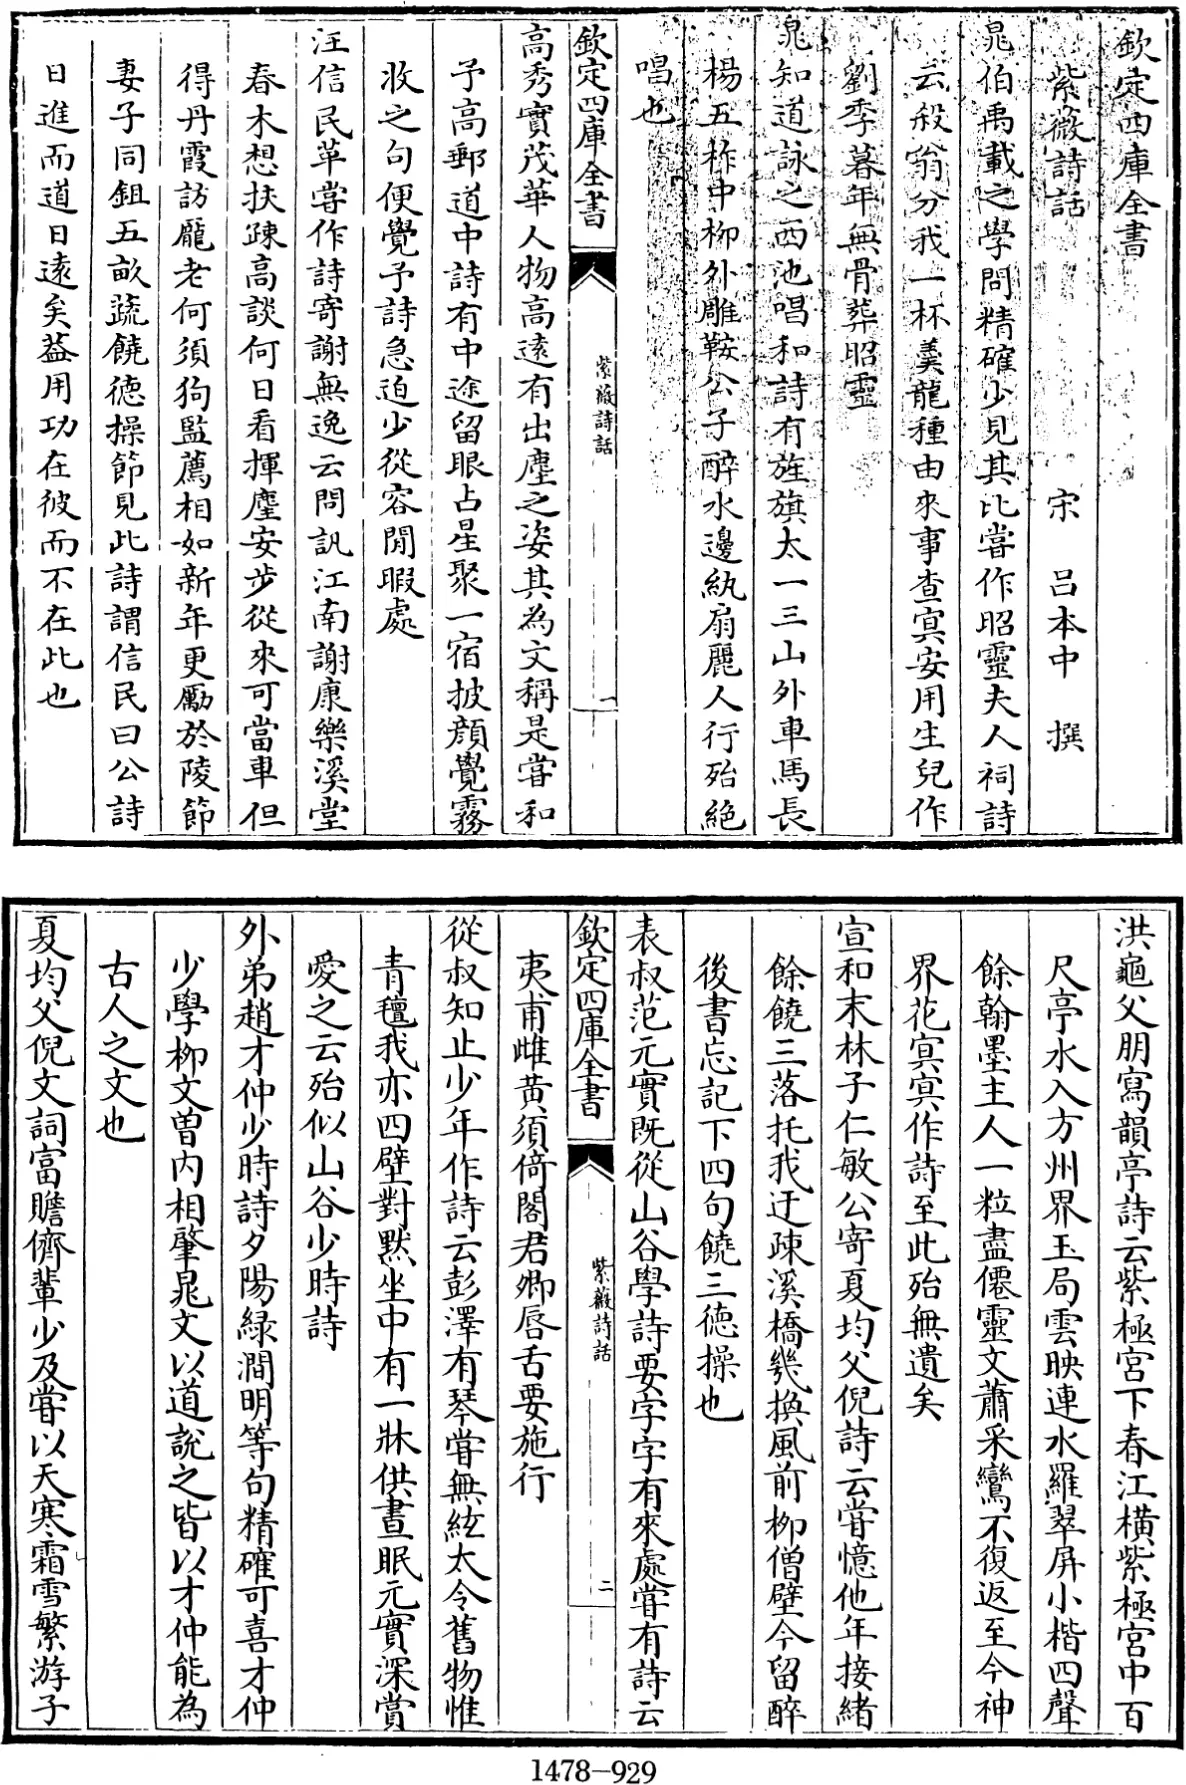 欽定四庫全書
紫薇詩話
宋 呂本中 撰
晁伯禹載之學問精確少見其比嘗作昭靈夫人祠詩
云殺翁分我一杯羹龍種由來事杳冥安用生兒作
劉季暮年無骨葬昭靈
晁知道詠之西池唱和詩有旌旗太一三山外車馬長
楊五柞中柳外雕鞍公子醉水邊紈扇麗人行殆絶
唱也
欽定四庫全書
紫薇詩話
一
高秀實茂華人物高逺有出塵之姿其為文稱是嘗和
予高郵道中詩有中途留眼占星聚一宿披顔覺霧
收之句便覺予詩急迫少從容閒暇處
汪信民革嘗作詩寄謝無逸云問訊江南謝康樂溪堂
春木想扶疎高談何日看揮麈安步從來可當車但
得丹霞訪龐老何須狗監薦相如新年更勵於陵節
妻子同鉏五畝蔬饒德操節見此詩謂信民曰公詩
日進而道日逺矣葢用功在彼而不在此也
洪龜父朋寫韻亭詩云紫極宫下春江横紫極宫中百
尺亭水入方州界玉局雲映連水羅翠屏小楷四聲
餘翰墨主人一粒盡僊靈文蕭采鸞不復返至今神
界花㝠㝠作詩至此殆無遺矣
宣和末林子仁敏公寄夏均父倪詩云嘗憶他年接緒
餘饒三落托我迂疎溪橋幾換風前柳僧壁今留醉
後書忘記下四句饒三德操也
表叔范元實既從山谷學詩要字字有來處嘗有詩云
欽定四庫全書
紫薇詩話
二
夷甫雌黄須倚閣君卿唇舌要施行
從叔知止少年作詩云彭澤有琴嘗無絃太令舊物惟
青氊我亦四壁對黙坐中有一牀供晝眠元實深賞
愛之云殆似山谷少時詩
外弟趙才仲少時詩夕陽緑澗明等句精確可喜才仲
少學柳文曾内相肇晁文以道說之皆以才仲能為
古人之文也
夏均父倪文詞富贍儕輩少及嘗以天寒霜雪繁游子
1478-929